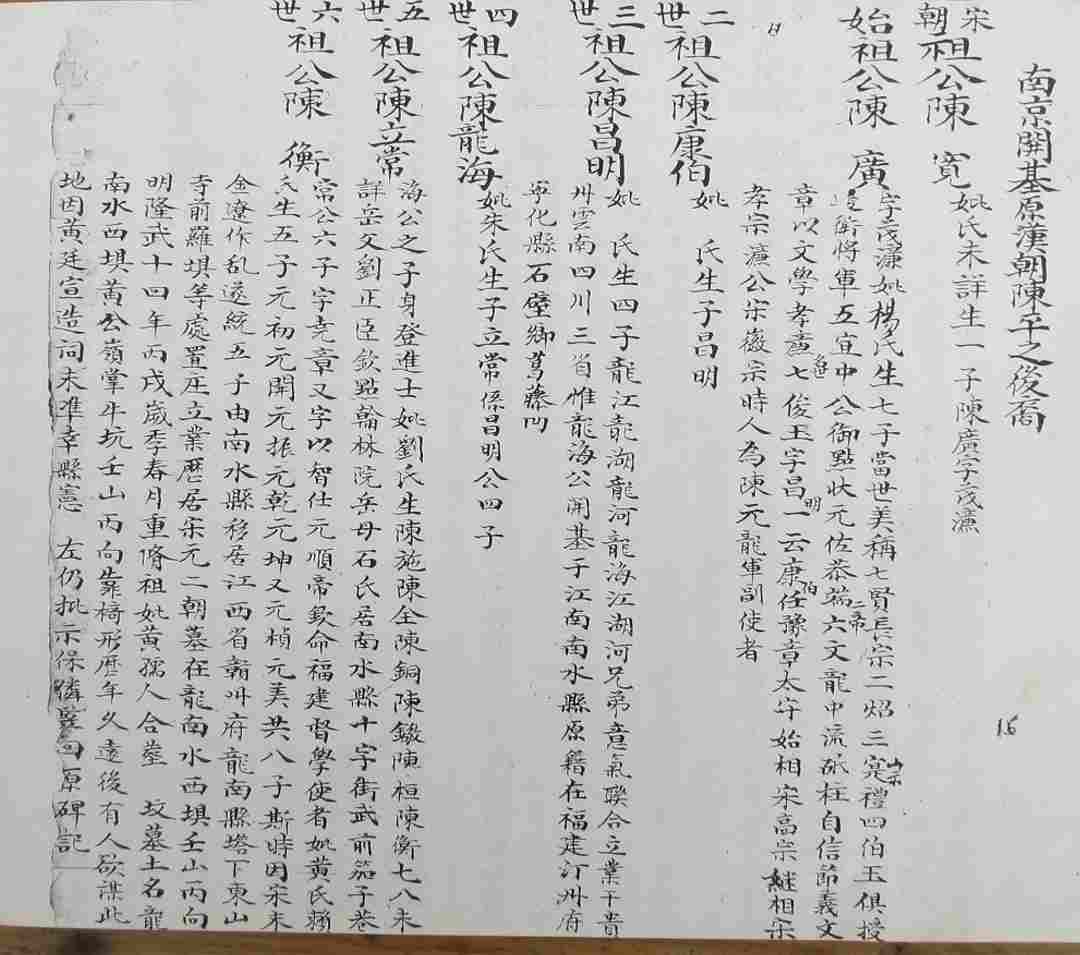 南京開基原漢朝陳平之後裔
宋朝祖公陳寬 妣氏未詳生一子陳廣字茂濂
始祖公陳廣 字茂濂妣楊氏生七子當世美稱七賢長宗二炤三寔禮四伯玉俱授
衛將軍五宜中公御點狀元佐恭端二帝六文龍中流砥柱自信節義文
章以文學孝廉七俊玉字昌明一云康伯任豫章太守始相宋高宗継相宋
孝宗濂公宋徽宗時人為陳元龍軍副使者
二世祖公陳康伯 妣 氏生子昌明
三世祖公陳昌明 妣 氏生四子龍江龍湖龍河龍海江湖河兄弟意氣联合立業于貴
州雲南四川三省惟龍海公開基于江南南水縣原籍在福建汀州府
寧化縣石壁鄉葛藤凹
四世祖公陳龍海 妣朱氏生子立常係昌明公四子
五世祖公陳立常 海公之子身登進士妣劉氏生陳施陳全陳銅陳鏾陳桓陳衡七八未
詳岳父劉正臣欽點翰林院岳母石氏居南水縣十字街武前笳子巷
六世祖公陳衡 常公六子字堯章又字以智仕元順帝欽命福建督學使者妣黃氏賴
氏生五子元初元開元振元乾元坤又元楨元美共八子斯時因宋末
金遼作乱遂統五子由南水縣移居江西省贛州府龍南縣塔下東山
寺前羅垻等處置庄立業歷居宋元二朝墓在龍南水西垻壬山丙向
明隆武十四年丙戌歲季春月重脩祖妣黃孺人合塋 坟墓土名龍
南水西垻黃公嶺掌牛坑壬山丙向靠椅形歷年久遠後有人欲謀此
地因黃廷宣造祠未准幸縣憲 左仍批示保隣竪回原碑記
15